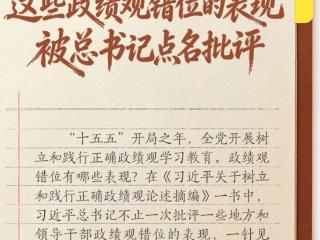 这些政绩观错位的表现
被总书记点名批评
“十五五”开局之年，全党开展树
立和践行正确政绩观学习教育。政绩观
错位有哪些表现？在《习近平关于树立
和践行正确政绩观论述摘编》一书中，
习近平总书记不止一次批评一些地方和
领导干部政绩观错位的表现，一针见